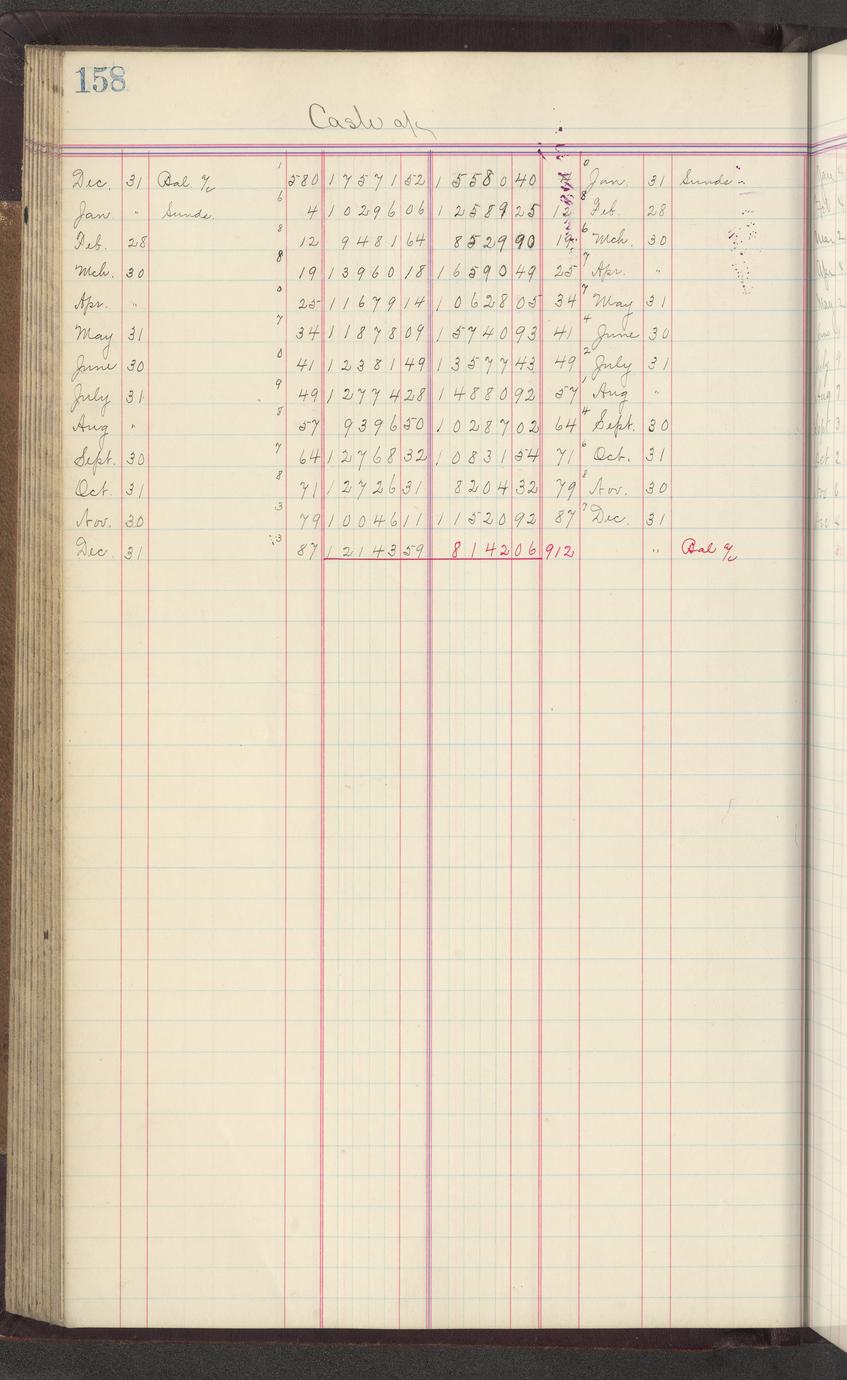 158
Cash a/c
Dec. 31 Bal. a/c 1 580 17571 52 15580 40 0 Jan. 31 Sunds "
Jan. " Sunds. 6 4 10296 06 12589 25 8 Feb. 28
Feb. 28 8 12 9481 64 8529 90 19 6 Mch. 30
Mch. 30 8 19 13960 18 16590 49 25 7 Apr. "
Apr. " 0 25 11679 14 10628 05 34 7 May 31
May 31 7 34 11878 09 15740 93 41 4 June 30
June 30 0 41 12381 49 13577 43 49 2 July 31
July 31 9 49 12774 28 14880 92 57 1 Aug "
Aug " 8 57 9396 50 10287 02 64 4 Sept. 30
Sept. 30 7 64 12768 32 10831 54 71 6 Oct. 31
Oct. 31 8 71 12726 31 8204 32 79 8 Nov. 30
Nov. 30 3 79 10046 11 11520 92 87 7 Dec. 31
Dec. 31 3 87 12143 59 8142 06 912 " Bal a/c